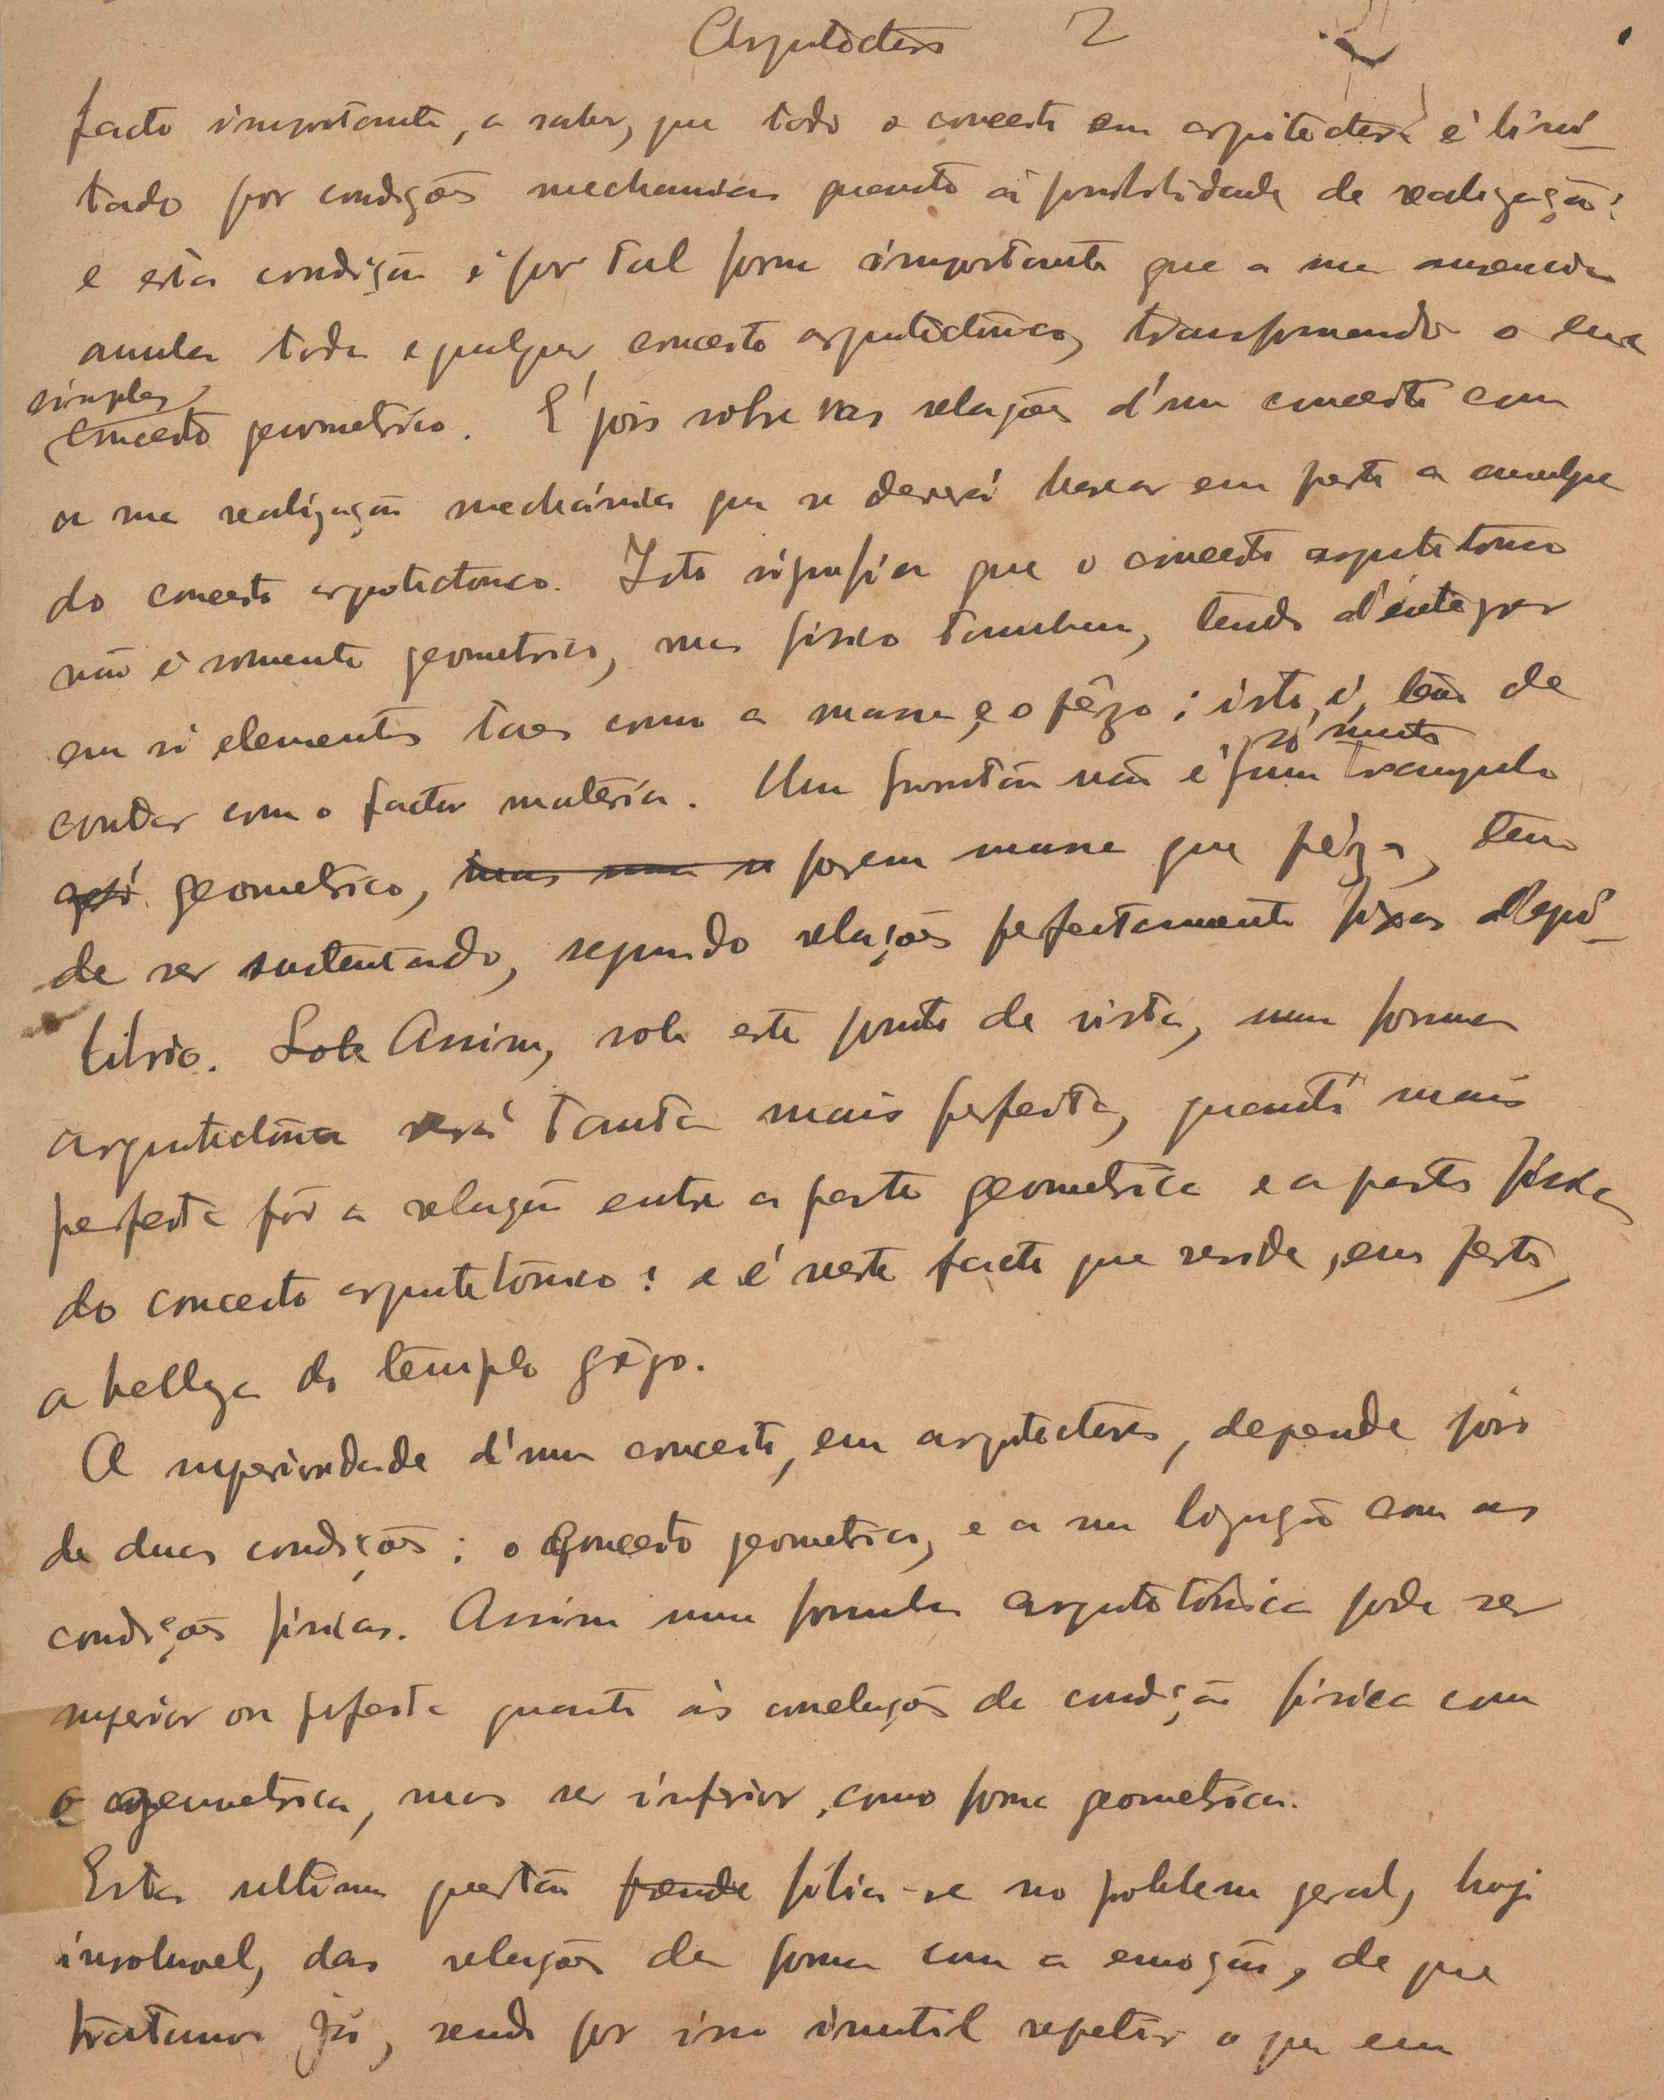 Arquitectura 2
facto importante, a saber, que todo o conceito em arquitectura é limi-
tado por condições mechanicas quanto á possibilidade de realização:
e esta condição é por tal forma importante que a sua ausencia
annula todo e qualquer conceito arquitectónico, transformando o em
simples
conceito geometrico. É pois sobre as relações d'um conceito com
a sua realização mechánica que se deverá basear em parte a
do conceito arquitectonico. Isto significa que o conceito arquitetonico
não é somente geometrico, mas fisico tambem, tendo d'integrar
em si elementos taes como a massa e o pêzo; isto é, tem de
contar com o factor materia. Um frontão não é sómente um triangulo
geometrico, mas uma porem massa que péza, tem
de ser sustentado, segundo relações perfeitamente fixas d'equi-
librio. Sob Assim, sob este ponto de vista, uma forma
arquitectónica será tanta mais perfeita, quanto mais
perfeita fôr a relação entre a parte geometrica e a parte fisica
do conceito arquitetónico: e é neste facto que reside, em parte,
a belleza do templo grego.
A superioridade d'um conceito, em arquitectura, depende pois
de duas condições: o conceito geometrico, e a sua ligação com as
condições fisicas. Assim uma formula arquitetónica pode ser
superior ou perfeita quanto ás correlações da condição fisica com
a geometrica, mas ser inferior, como forma geometrica.
Esta ultima questão prende filia-se no problema geral, hoje
insoluvel, das relações da forma com a emoção, de que
tratamos já, sendo por isso inutil repetir o que em